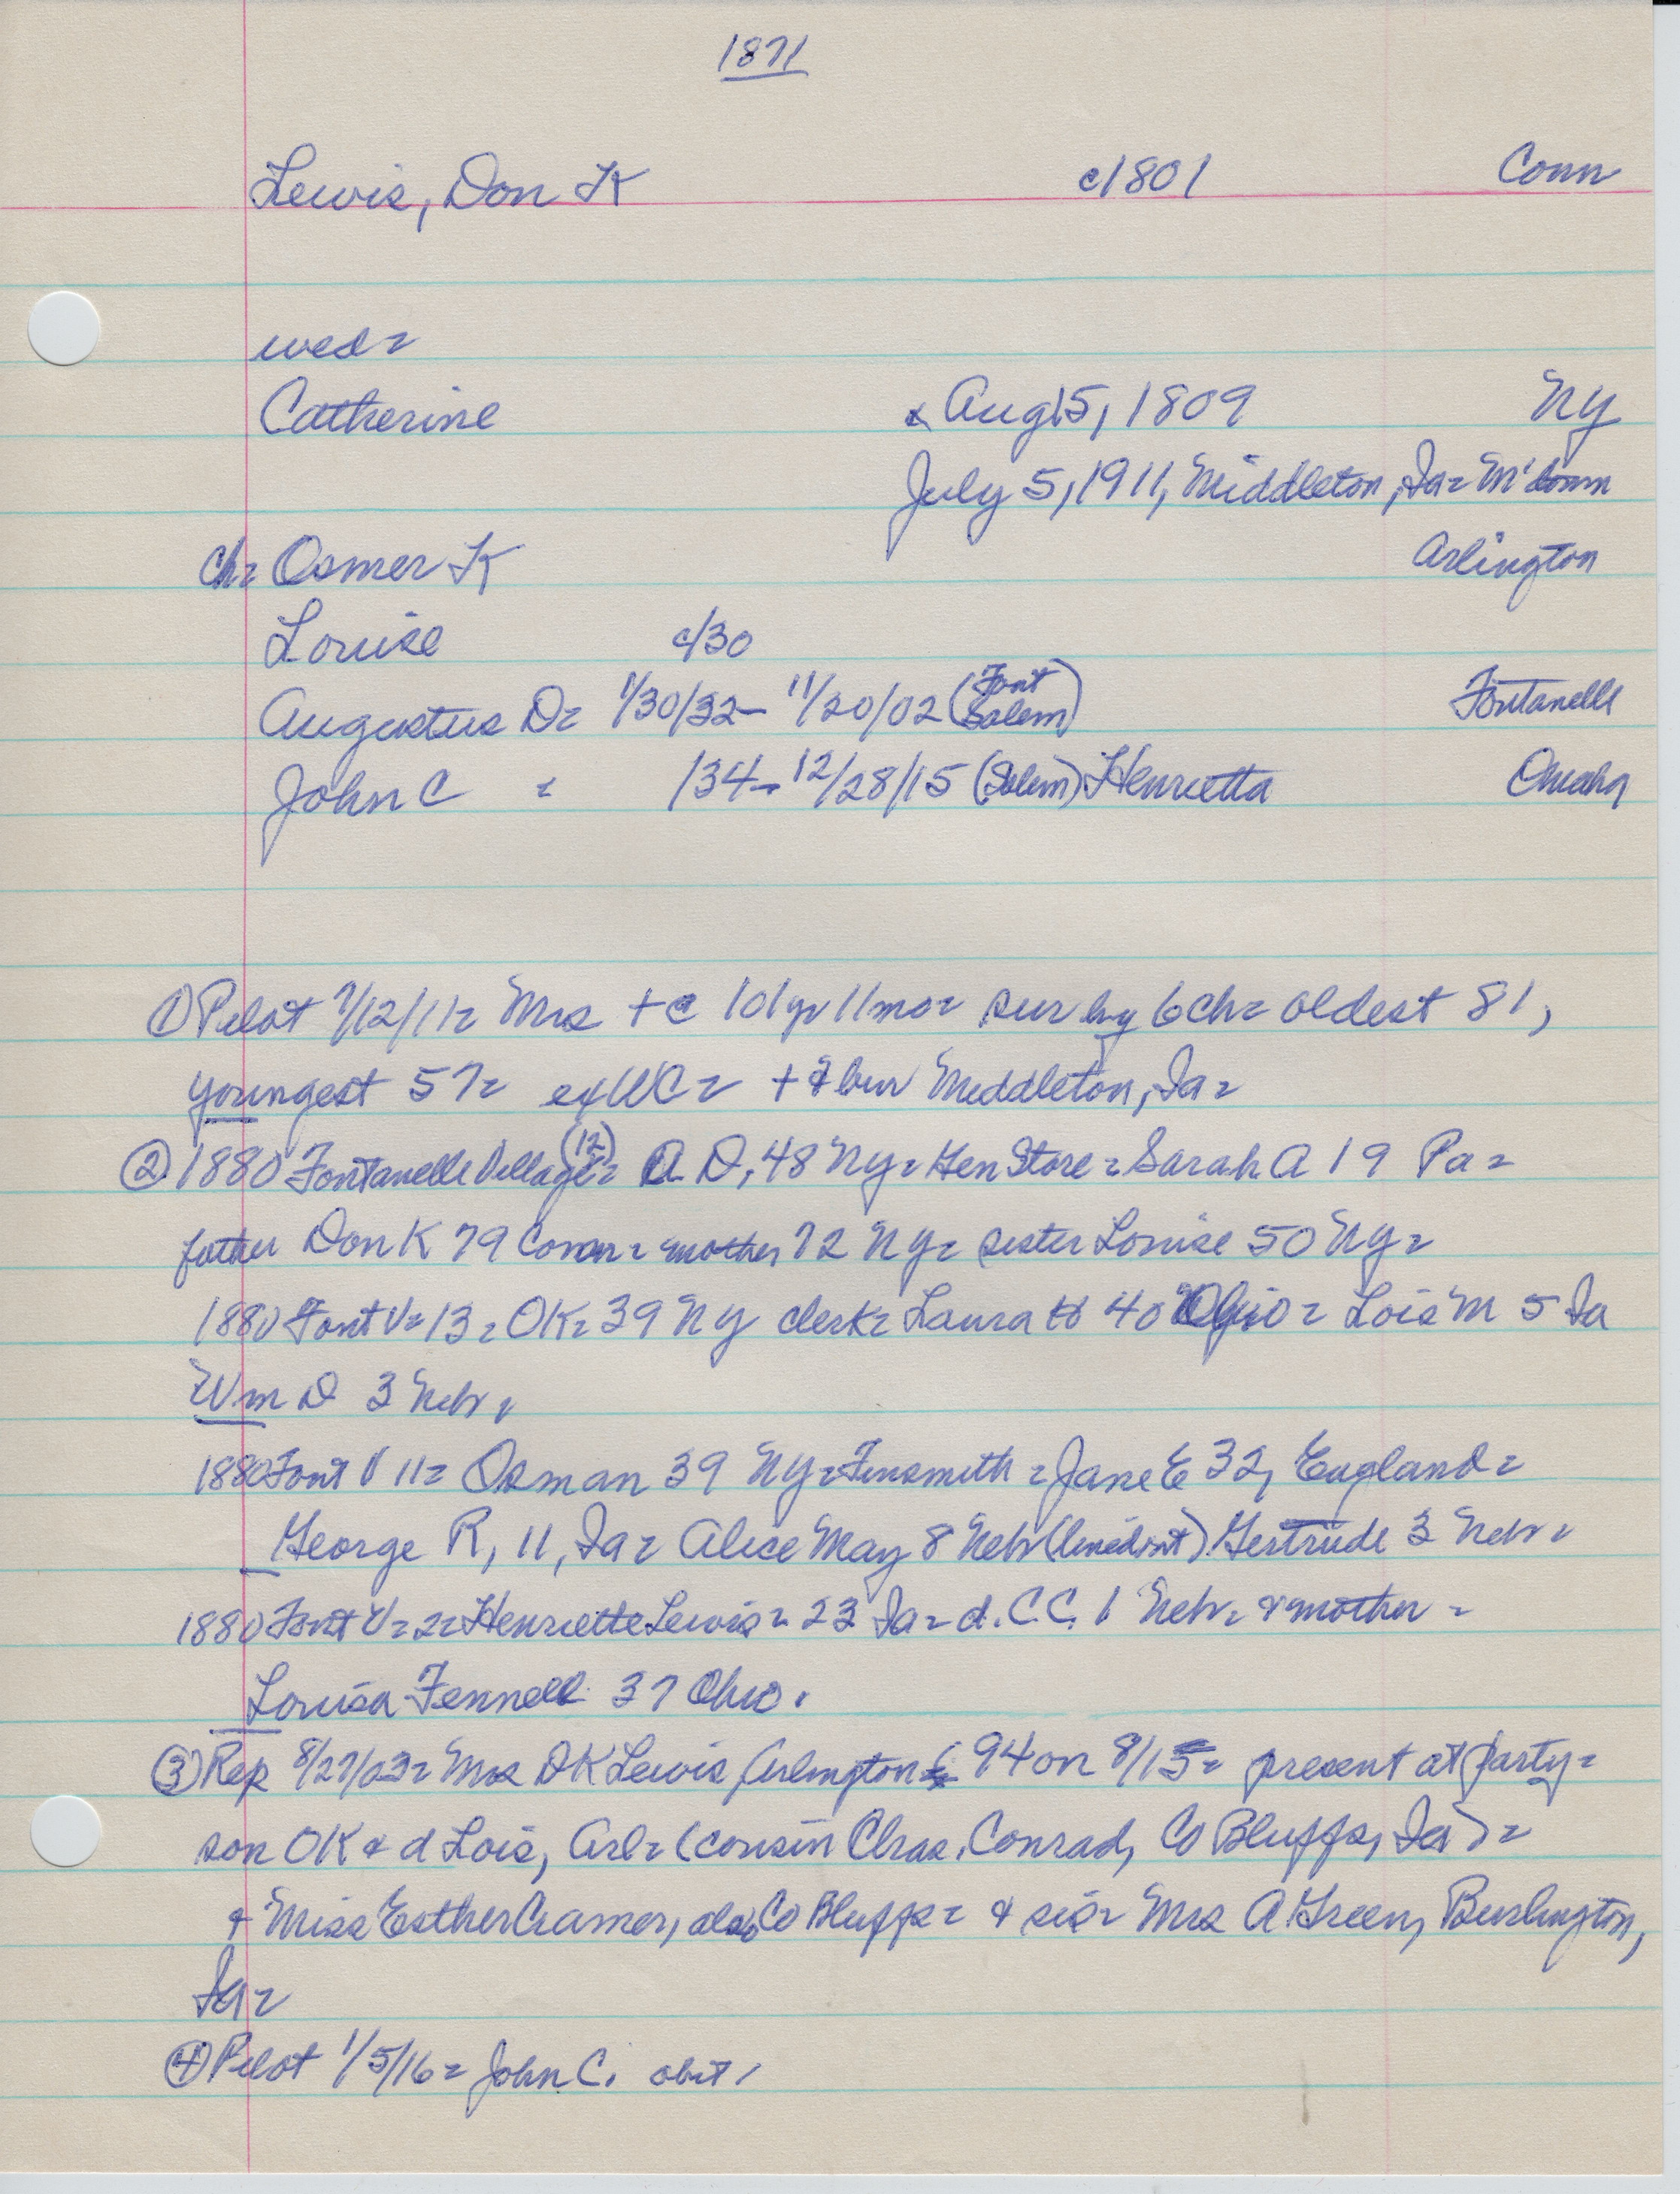 1871
Lewis, Don K c1801 Conn
wed=
Catherine Aug 15, 1809 NY
July 5, 1911, Middleton, Ia=
ch= Osmer K Arlington
Louise c/30
Augustus D= 1/30/32- 11/20/02 (Font Salem) Fontanelle
John C = /34- 12/28/15 (Salem) Henrietta Omaha
① Pilot 7/12/11= Mrs + @ 101 yr 11 mo= sur by 6 ch= oldest 81,
youngest 57= + & bur Middleton, Ia=
② 1880 Fontanelle Village (12)= A D, 48 NY= Gen Store= Sarah A 19 Pa=
father Don K 79 Conn= mother 72 NY= sister Louise 50 NY=
1880 Font V= 13= OK= 39 NY clerk= Laura H 40 Ohio= Lois M 5 Ia
Wm D 3 Nebr.
1880 Font V 11= Osman 39 NY= Tinsmith= Jane E 32, England=
George R, 11, Ia= Alice May 8 Nebr Gertrude 3 Nebr=
1880 Font V= 2= Henriette Lewis= 23 Ia= d. C.C. 1 Nebr= & mother=
Louisa Fennell 37 Ohio.
③ Rep 8/27/03= Mrs DK Lewis, Arlington 94 on 8/15= present at party=
son OK & d Lois, Arl= (cousin Chas. Conrad, Co Bluffs, Ia)=
& Miss Esther Cramer, also Co Bluffs= & sis= Mrs A Green, Burlington,
Ia=
④ Pilot 1/5/16= John C. obit.